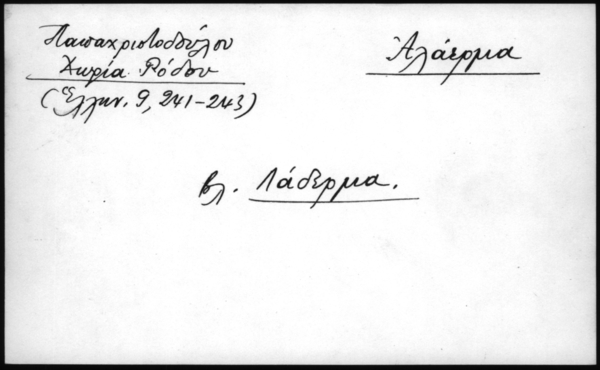 Παπαχριστοδούλου
Χωρία Ρόδου
(Ἑλλην. 9, 241-243)
Ἀλάερμα
βλ. Λάδερμα.